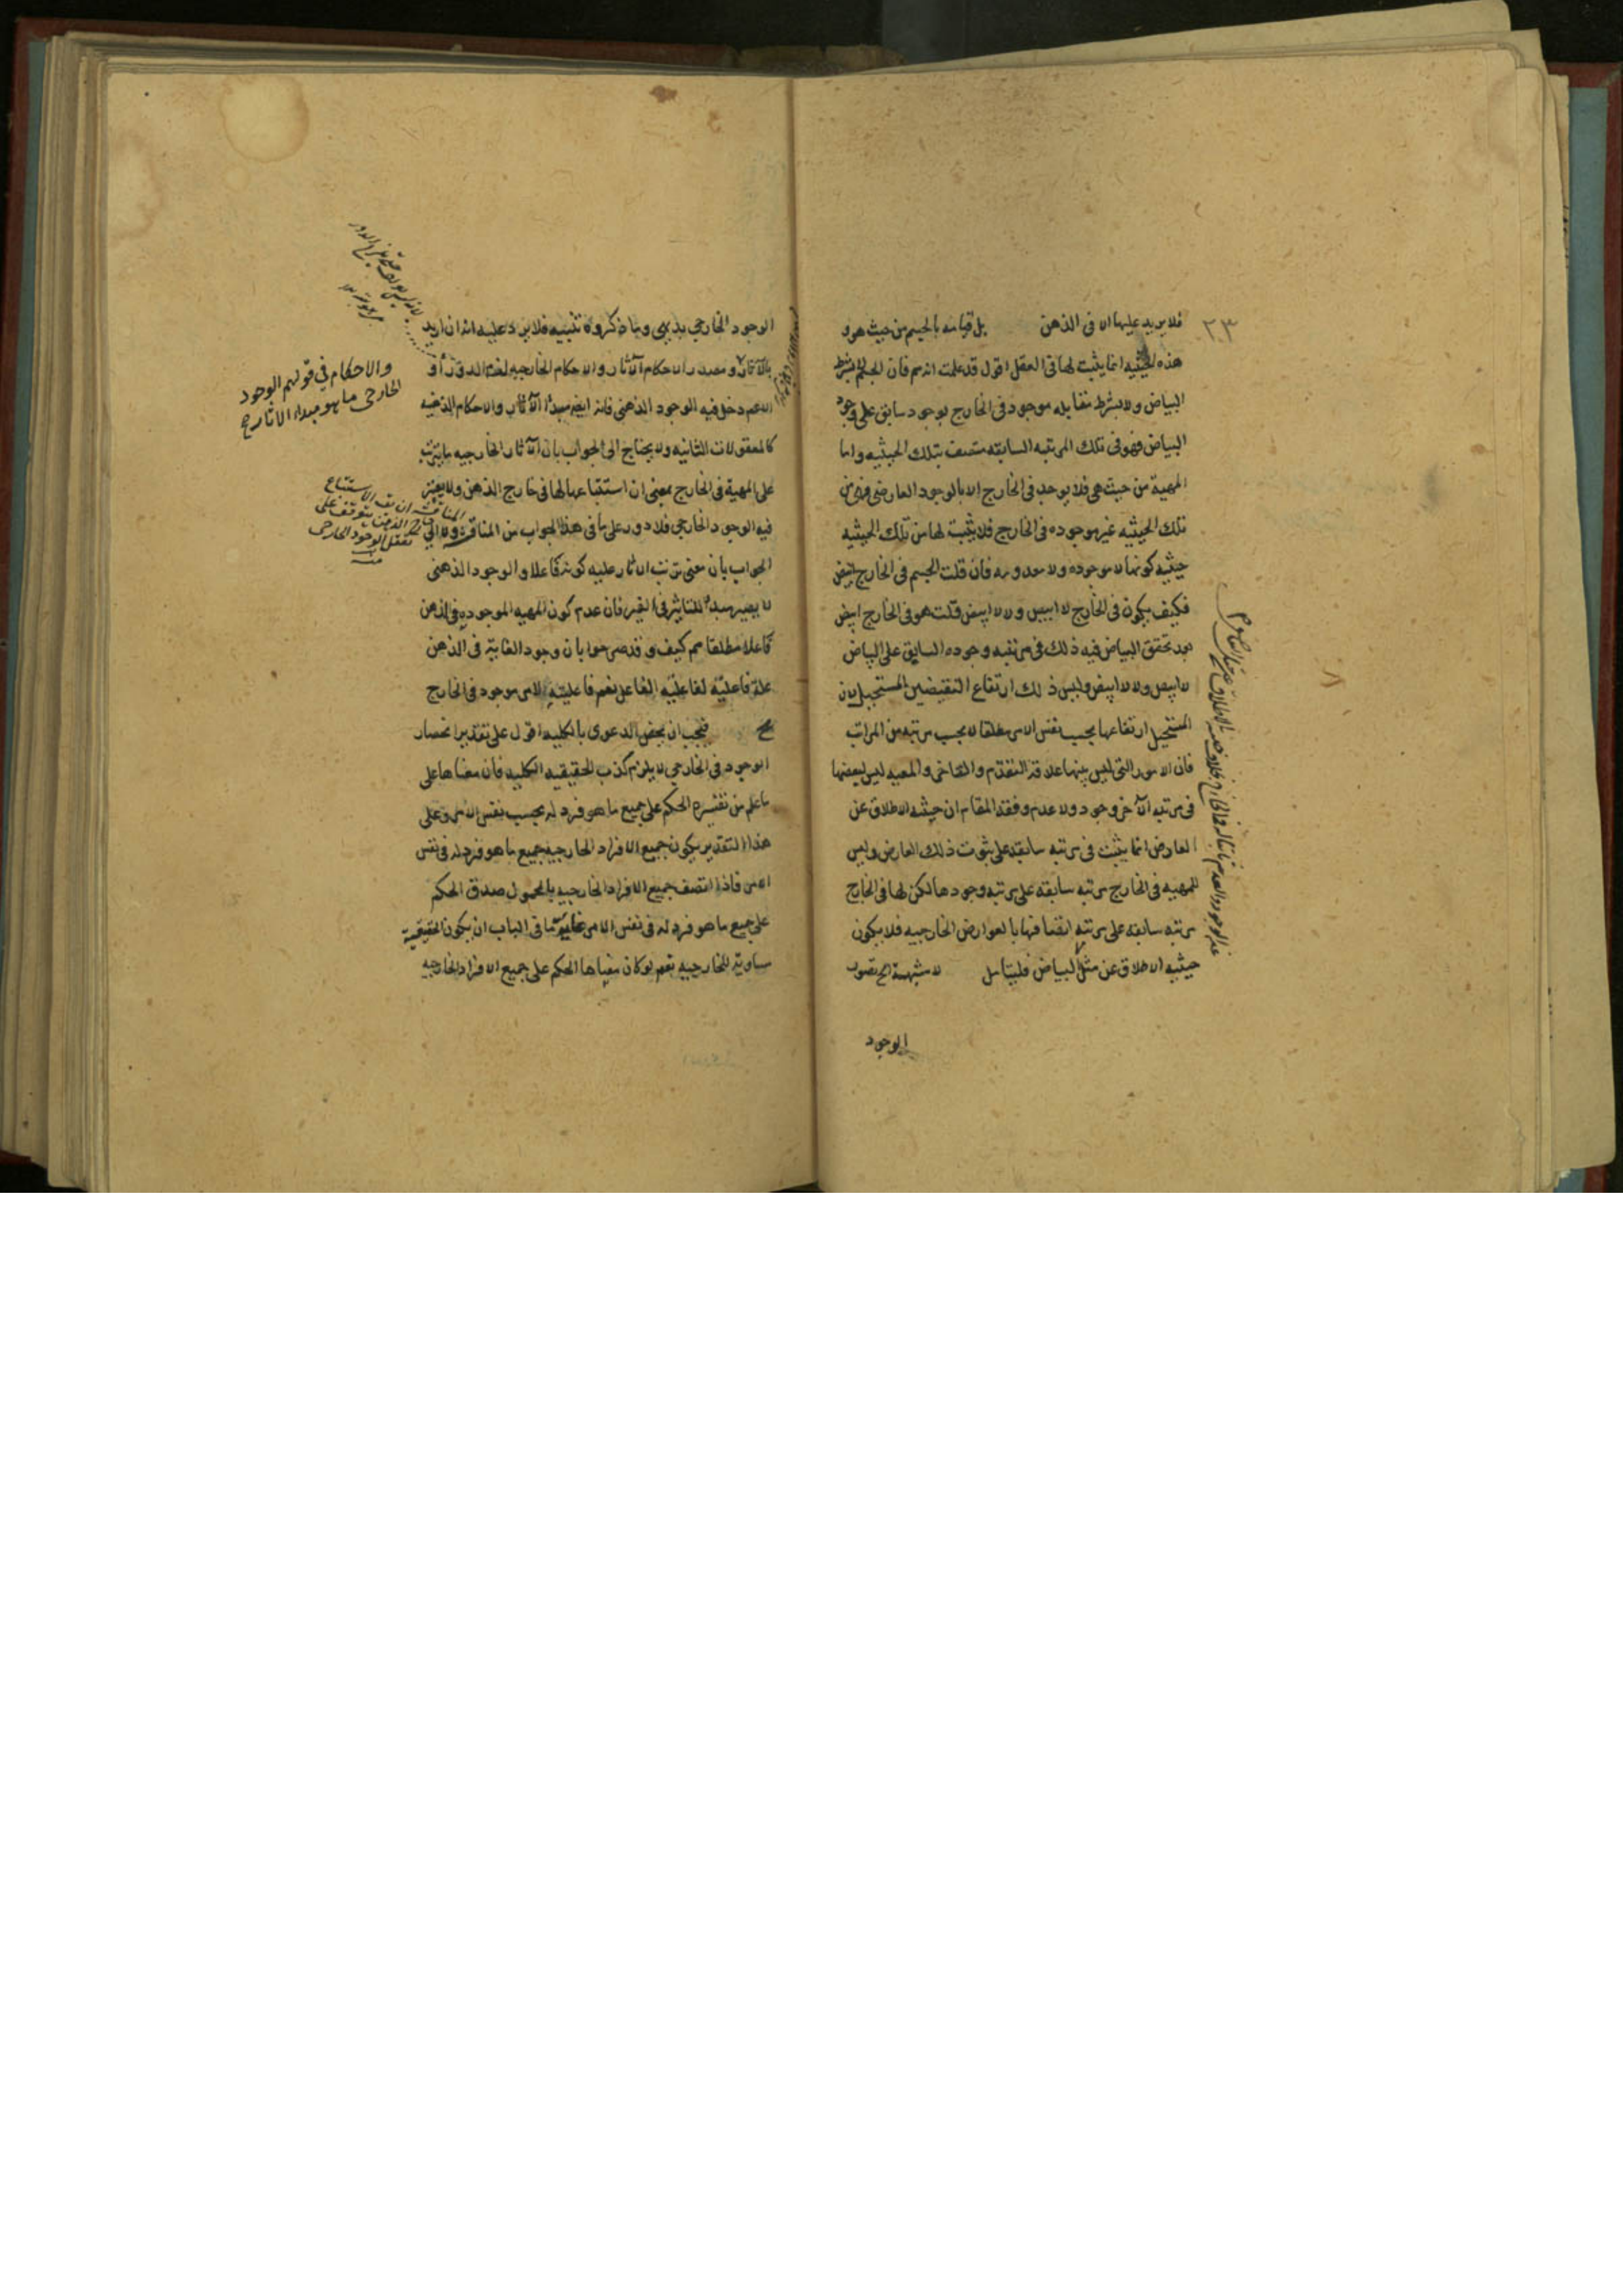 ٢٣
فلا يزيد عليها الا فى الذهن بل قيامه بالجسم من حيث هو و
هذه الحيثيه انما يثبت لها فى العقل اقول قد علمت انه فان الجسم بشرط
البياض ولا بشرط مقابله موجود فى الخارج بوجود سابق على وجود
البياض فهو فى تلك المرتبه السابقه متصف بتلك الحيثيه واما
المهية من حيث هى فلا يوجد فى الخارج الا بالوجود العارض فهى من
تلك الحيثيه غير موجوده فى الخارج فلا يثبت لها من تلك الحيثيه
حيثيه كونها لا موجوده ولا معدومه فان قلت الجسم فى الخارج ابيض
فكيف يكون فى الخارج لا ابيض ولا لا ابيض قلت هو فى الخارج ابيض
بعد تحقق البياض فيه ذلك فى مرتبه وجوده السابق على البياض
لا ابيض ولا لا ابيض وليس ذلك ارتفاع النقيضين المستحيل لان
المستحيل ارتفاعها بحسب نفس الامر مطلقا لا بحسب مرتبه من المراتب
فان الامور التى ليس بينها علاقه التقدم والتاخر والمعيه ليس لبعضها
فى مرتبه الآخر وجود ولا عدم وفقه المقام ان حيثيه الاطلاق عن
العارض انما يثبت فى مرتبه سابقه على ثبوت ذلك العارض وليس
للمهيه فى الخارج مرتبه سابقه على مرتبه وجودها لكن لها فى الخارج
مرتبه سابقه على مرتبه اتصافها بالعوارض الخارجيه فلا يكون
حيثيه الاطلاق عن مثل البياض فليتامل لا شبهة الخ تصور
الوجود
٨
الوجود الخارجى بديهى وما ذكروه تنبيه فلا يرد عليه انه ان اريد
بالآثار ومصدر الاحكام الآثار والاحكام الخارجيه لزم الدور أو
الاعم دخل فيه الوجود الذهنى فانه ايضا مبدأ الآثار والاحكام الذهنيه
كالمعقولات الثانيه ولا يحتاج الى الجواب بان الآثار الخارجيه ما يترتب
على المهية فى الخارج بمعنى ان استتباعها لها فى خارج الذهن ولا يعتبر
فيه الوجود الخارجى فلا دور على ما فى هذا الجواب من المناقشة ولا الى
الجواب بان معنى ترتب الاثار عليه كونه فاعلا والوجود الذهنى
لا يصير مبدأ للتاثير فى الغير فان عدم كون المهيه الموجوده فى الذهن
فاعلا مطلقا مم كيف وقد صرحوا بان وجود الغاية فى الذهن
علة فاعلية لفاعلية الفاعل نعم فاعليته لامر موجود فى الخارج
مح فيجب ان يخص الدعوى بالكليه اقول على تقدير انحصار
الوجود فى الخارجى لا يلزم كذب الحقيقيه الكليه فان معناها على
ما علم من تفسيره الحكم على جميع ما هو فرد له بحسب نفس الامر وعلى
هذا التقدير يكون جميع الافراد الخارجيه جميع ما هو فرد له فى نفس
الامر فاذا اتصف جميع الافراد الخارجيه بالمحمول صدق الحكم
على جميع ما هو فرد له فى نفس الامر غايه ما فى الباب ان يكون الحقيقية
مساوية للخارجيه نعم لو كان معناها الحكم على جميع الافراد الخارجيه
والاحكام فى قولهم الوجود
الخارجى ما هو مبداء الاثار الخ
المناقشة ان يقـ الاستتباع
خارج الذهن يتوقف على
تعقل الوجود الخارجى
منه